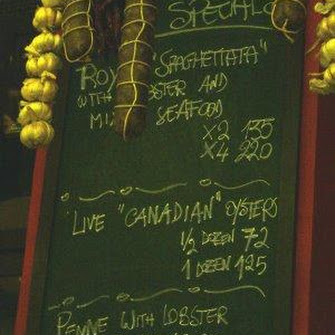 SPECIALS
"SPAGHETTATA"
WITH LOBSTER AND
SEAFOOD
X2 135
X4 220
LIVE "CANADIAN" OYSTERS
1/2 DOZEN 72
1 DOZEN 125
PENNE WITH LOBSTER